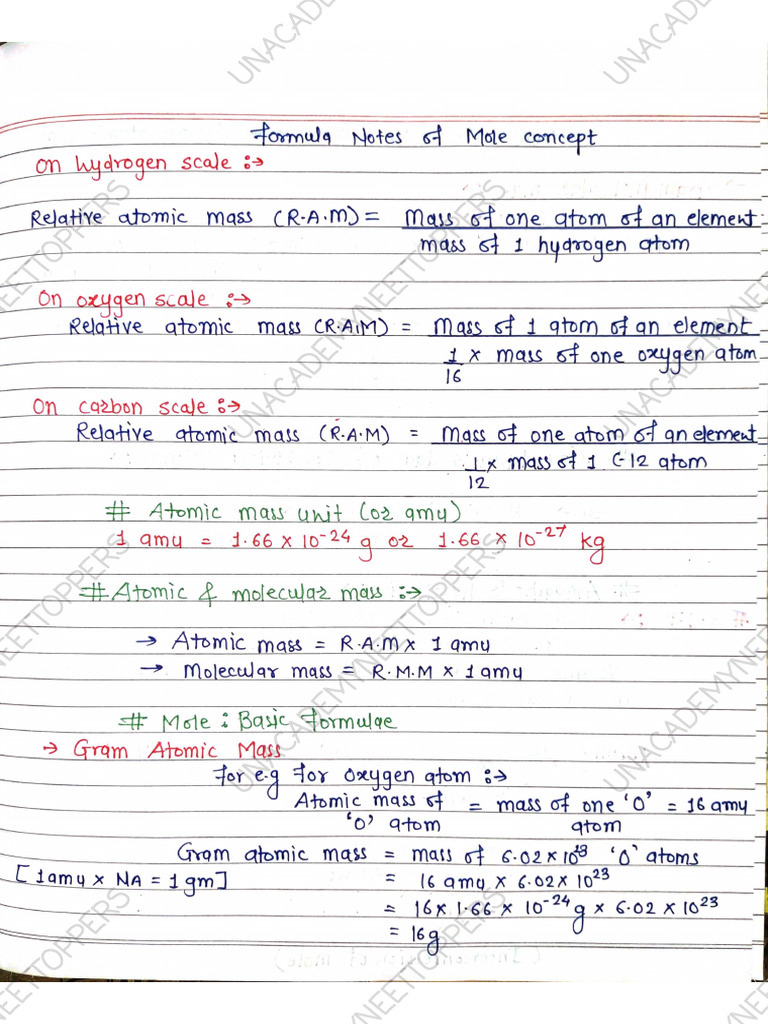 Formula Notes of Mole concept
On hydrogen scale :→
Relative atomic mass (R.A.M) = Mass of one atom of an element
mass of 1 hydrogen atom
On oxygen scale :→
Relative atomic mass (R.A.M) = Mass of 1 atom of an element
1/16 × mass of one oxygen atom
On carbon scale :→
Relative atomic mass (R.A.M) = Mass of one atom of an element
1/12 × mass of 1 C-12 atom
# Atomic mass unit (or amu)
1 amu = 1.66 × 10⁻²⁴ g or 1.66 × 10⁻²⁷ kg
# Atomic & molecular mass :→
→ Atomic mass = R.A.M × 1 amu
→ Molecular mass = R.M.M × 1 amu
# Mole : Basic Formulae
→ Gram Atomic Mass
For e.g For Oxygen atom :→
Atomic mass of 'O' atom = mass of one 'O' atom = 16 amu
Gram atomic mass = mass of 6.02 × 10²³ 'O' atoms
[1 amu × NA = 1 gm] = 16 amu × 6.02 × 10²³
= 16 × 1.66 × 10⁻²⁴ g × 6.02 × 10²³
= 16g
UNACADEMYNEETTOPPERS